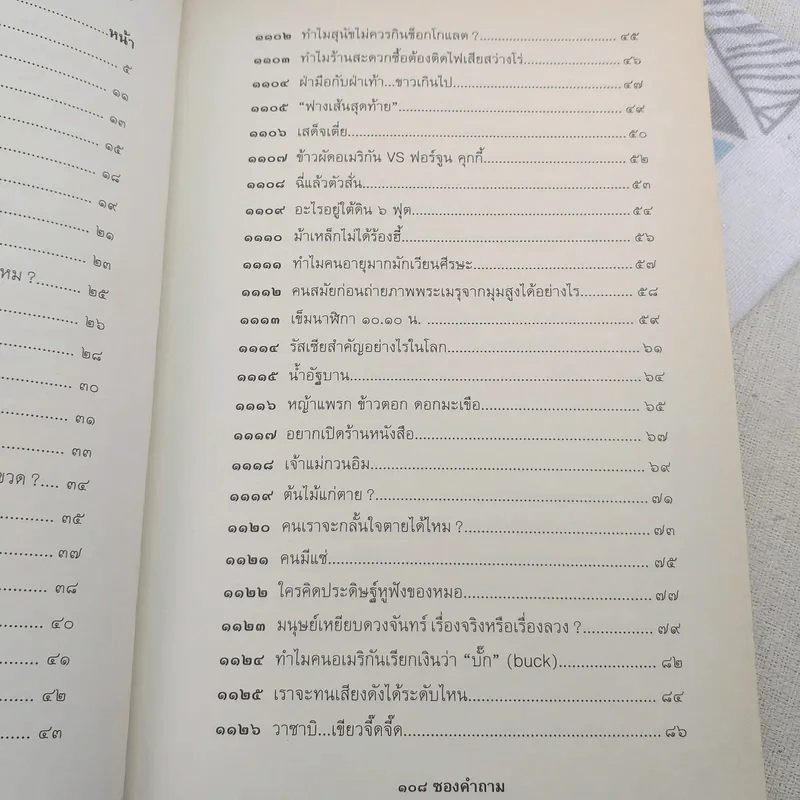 หน้า
๕
๑๑
๑๓
๑๕
๑๘
๑๙
๒๑
๒๓
หม ? ๒๕
๒๖
๒๘
๓๐
๓๑
๓๓
ขวด ? ๓๔
๓๕
๓๗
๓๘
๔๐
๔๑
๔๒
๔๓
๑๑๐๒ ทำไมสุนัขไม่ควรกินช็อกโกแลต ? ๔๕
๑๑๐๓ ทำไมร้านสะดวกซื้อต้องติดไฟเสียสว่างโร่ ๔๖
๑๑๐๔ ฝ่ามือกับฝ่าเท้า...ขาวเกินไป ๔๗
๑๑๐๕ “ฟางเส้นสุดท้าย” ๔๙
๑๑๐๖ เสด็จเตี่ย ๕๐
๑๑๐๗ ข้าวผัดอเมริกัน VS ฟอร์จูน คุกกี้ ๕๒
๑๑๐๘ ฉี่แล้วตัวสั่น ๕๓
๑๑๐๙ อะไรอยู่ใต้ดิน ๖ ฟุต ๕๔
๑๑๑๐ ม้าเหล็กไม่ได้ร้องฮี้ ๕๖
๑๑๑๑ ทำไมคนอายุมากมักเวียนศีรษะ ๕๗
๑๑๑๒ คนสมัยก่อนถ่ายภาพพระเมรุจากมุมสูงได้อย่างไร ๕๘
๑๑๑๓ เข็มนาฬิกา ๑๐.๑๐ น. ๕๙
๑๑๑๔ รัสเซียสำคัญอย่างไรในโลก ๖๑
๑๑๑๕ น้ำอัฐบาน ๖๔
๑๑๑๖ หญ้าแพรก ข้าวตอก ดอกมะเขือ ๖๕
๑๑๑๗ อยากเปิดร้านหนังสือ ๖๗
๑๑๑๘ เจ้าแม่กวนอิม ๖๙
๑๑๑๙ ต้นไม้แก่ตาย ? ๗๑
๑๑๒๐ คนเราจะกลั้นใจตายได้ไหม ? ๗๓
๑๑๒๑ คนมีแซ่ ๗๕
๑๑๒๒ ใครคิดประดิษฐ์หูฟังของหมอ ๗๗
๑๑๒๓ มนุษย์เหยียบดวงจันทร์ เรื่องจริงหรือเรื่องลวง ? ๗๙
๑๑๒๔ ทำไมคนอเมริกันเรียกเงินว่า “บั๊ก” (buck) ๘๒
๑๑๒๕ เราจะทนเสียงดังได้ระดับไหน ๘๔
๑๑๒๖ วาซาบิ...เขียวจี๊ดจี๊ด ๘๖
๑๐๘ ซองคำถาม